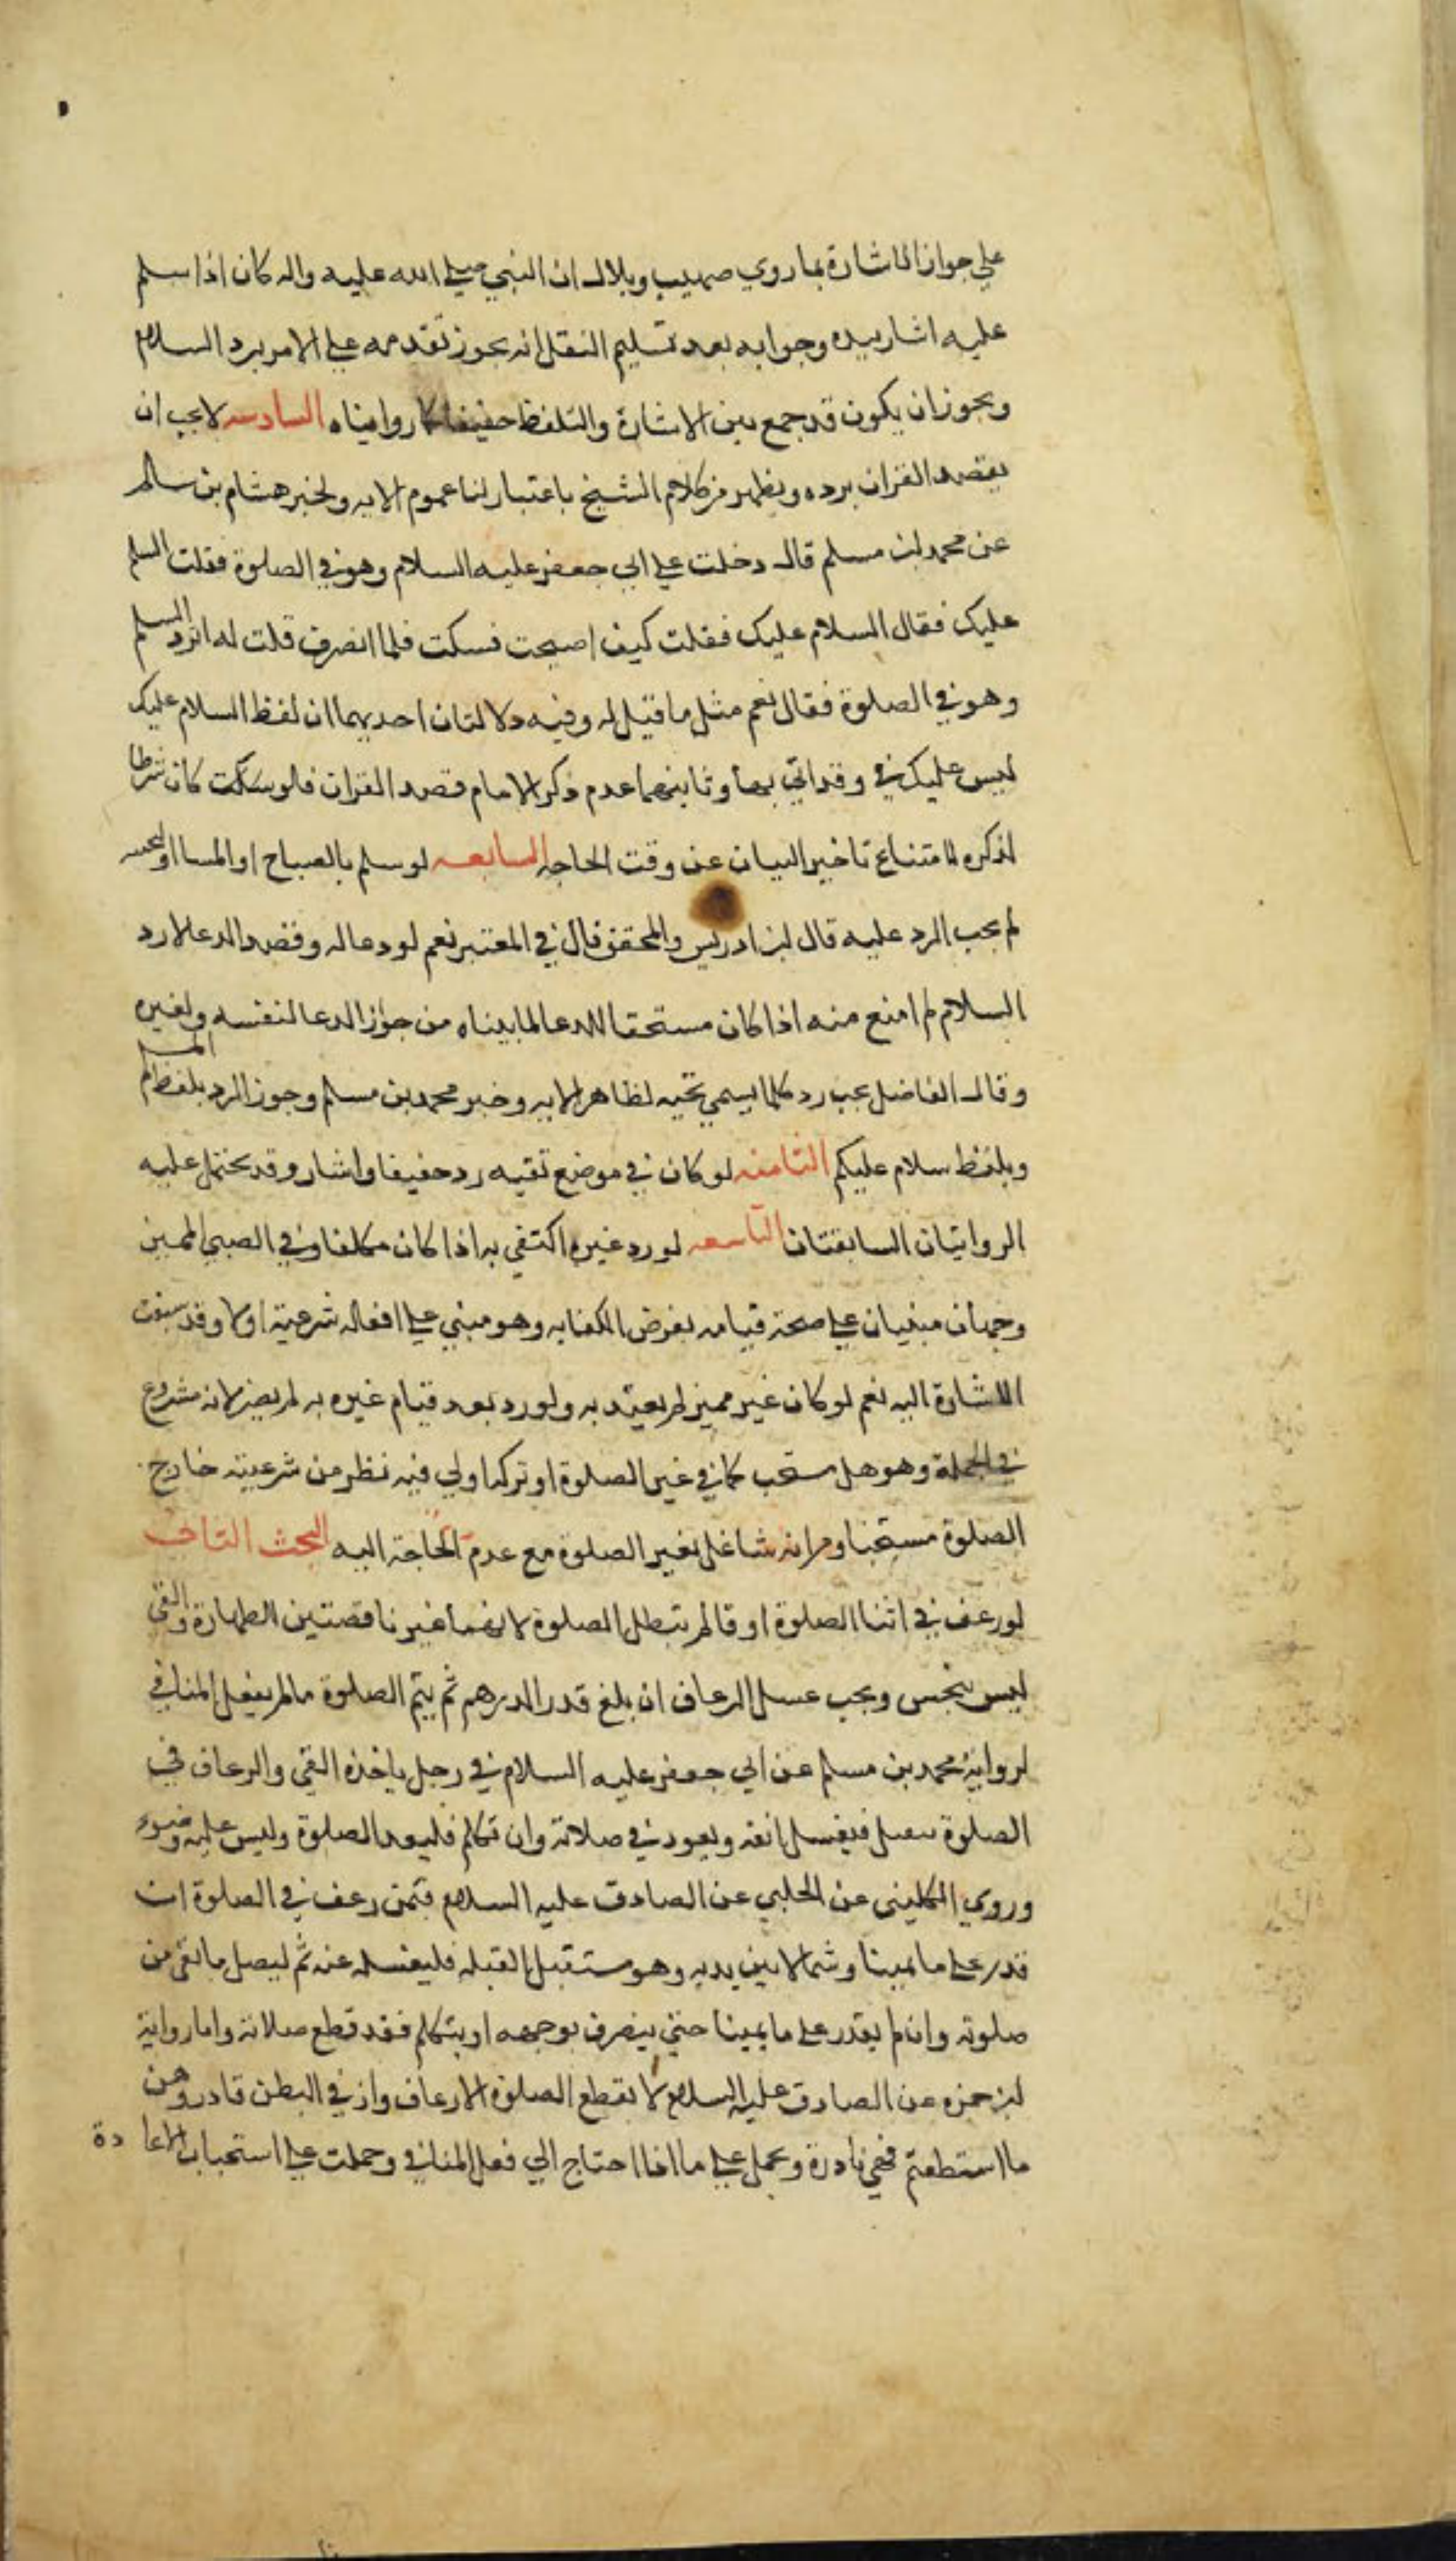 علي جواز الاشارة بما روي صهيب وبلال ان النبي صلي الله عليه واله كان اذا سلم
عليه اشار بيده وجوابه بعد تسليم النقل انه يجوز تقدمه علي الامر برد السلام
ويجوز ان يكون قد جمع بين الاشارة والتلفظ خفيفا كما رواميناه السادسه لا يجب ان
يقصد القران برده ويظهر من كلام الشيخ باعتبار لنا عموم الايه ولخبر هشام بن سالم
عن محمد بن مسلم قال دخلت علي ابي جعفر عليه السلام وهو في الصلوة فقلت السلم
عليك فقال السلام عليك فقلت كيف اصبحت فسكت فلما انصرف قلت له ايرد السلم
وهو في الصلوة فقال نعم مثل ما قيل له وفيه دلالتان احديهما ان لفظ السلام عليك
ليس عليك في وقد اتي بها وثانيهما عدم ذكر الامام قصد القران فلو سكت كان شرطا
لذكره لامتناع تاخير البيان عن وقت الحاجه السابعه لو سلم بالصباح او المسا او
لم يجب الرد عليه قال ابن ادريس والمحقق قال في المعتبر نعم لو دعا له وقصد الدعا لا رد
السلام لم امنع منه اذا كان مستحقا للدعا لما بيناه من جواز الدعا لنفسه ولغيره
وقال الفاضل يجب رد كلما يسمي تحيه لظاهر الايه وخبر محمد بن مسلم وجوز الرد بلفظ المسلم
وبلفظ سلام عليكم الثامنه لو كان في موضع تقيه رد خفيفا واشار وقد يحتمل عليه
الروايتان السابقتان التاسعه لو رد غيره اكتفي به اذا كان مكلفا وفي الصبي المميز
وجهان مبنيان علي صحة قيامه بفرض الكفايه وهو مبني علي افعاله شرعية او لا وقد سبقت
الاشارة اليه نعم لو كان غير مميز لم يعتد به ولو رد بعد قيام غيره به لم يضر لانه مشروع
في الجملة وهو هل مستحب كما في غير الصلوة او تركه اولي فيه نظر من شرعيته خارج
الصلوة مستحبا ومن انه شاغل بغير الصلوة مع عدم الحاجة اليه البحث الثاني
لو رعف في اثنا الصلوة او قا لم تبطل الصلوة لانهما غير ناقضتين الطهارة والقي
ليس بنجس ويجب غسل الرعاف ان بلغ قدر الدرهم ثم يتم الصلوة ما لم يفعل المنافي
لرواية محمد بن مسلم عن ابي جعفر عليه السلام في رجل ياخذه القي والرعاف في
الصلوة فيغسل انفه ويعود في صلاته وان تكلم فليعد الصلوة وليس عليه وضوء
وروي الكليني عن الحلبي عن الصادق عليه السلام فيمن رعف في الصلوة ان
قدر علي ما يمينا وشمالا بين يديه وهو مستقبل القبله فليغسله عنه ثم ليصل ما بقي من
صلوته وان لم يقدر علي ما يمينا حتي ينصرف بوجهه او يتكلم فقد قطع صلاته واما رواية
ابن حمزه عن الصادق عليه السلام لا يقطع الصلوة الا رعاف واز في البطن فادروهن
ما استطعتم فهي نادرة ويحمل علي ما اذا احتاج الي فعل المنافي وحملت علي استحباب الاعادة